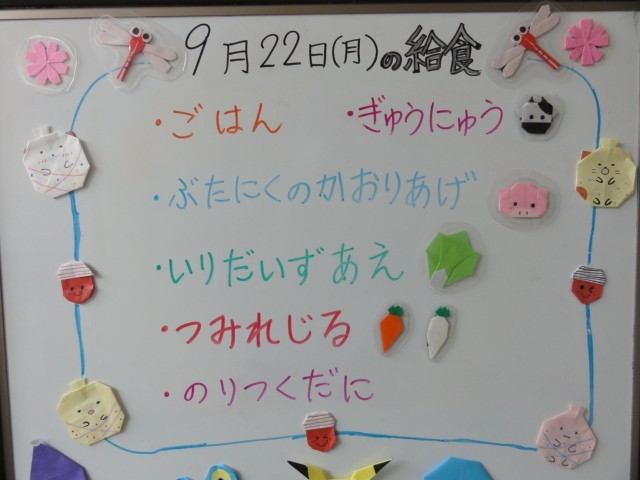 9月22日(月)の給食
・ごはん ・ぎゅうにゅう
・ぶたにくのかおりあげ
・いりだいずあえ
・つみれじる
・のりつくだに